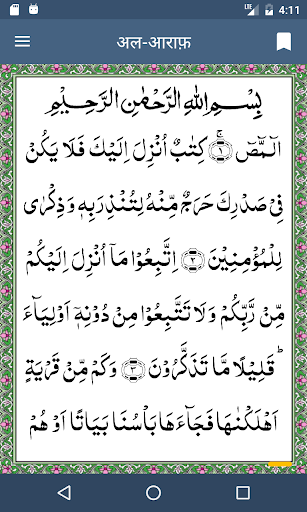 LTE 4:11
अल-आराफ़
بِسْمِ اللهِ الرَّحْمٰنِ الرَّحِيْمِ
الٓـمّٓصٓ ۚ﴿۱﴾ كِتٰبٌ اُنْزِلَ اِلَيْكَ فَلَا يَكُنْ
فِىْ صَدْرِكَ حَرَجٌ مِّنْهُ لِتُنْذِرَ بِهٖ وَذِكْرٰى
لِلْمُؤْمِنِيْنَ ﴿۲﴾ اِتَّبِعُوْا مَاۤ اُنْزِلَ اِلَيْكُمْ
مِّنْ رَّبِّكُمْ وَلَا تَتَّبِعُوْا مِنْ دُوْنِهٖۤ اَوْلِيَآءَ
ؕ قَلِيْلًا مَّا تَذَكَّرُوْنَ ﴿۳﴾ وَكَمْ مِّنْ قَرْيَةٍ
اَهْلَكْنٰهَا فَجَآءَهَا بَاْسُنَا بَيَاتًا اَوْ هُمْ